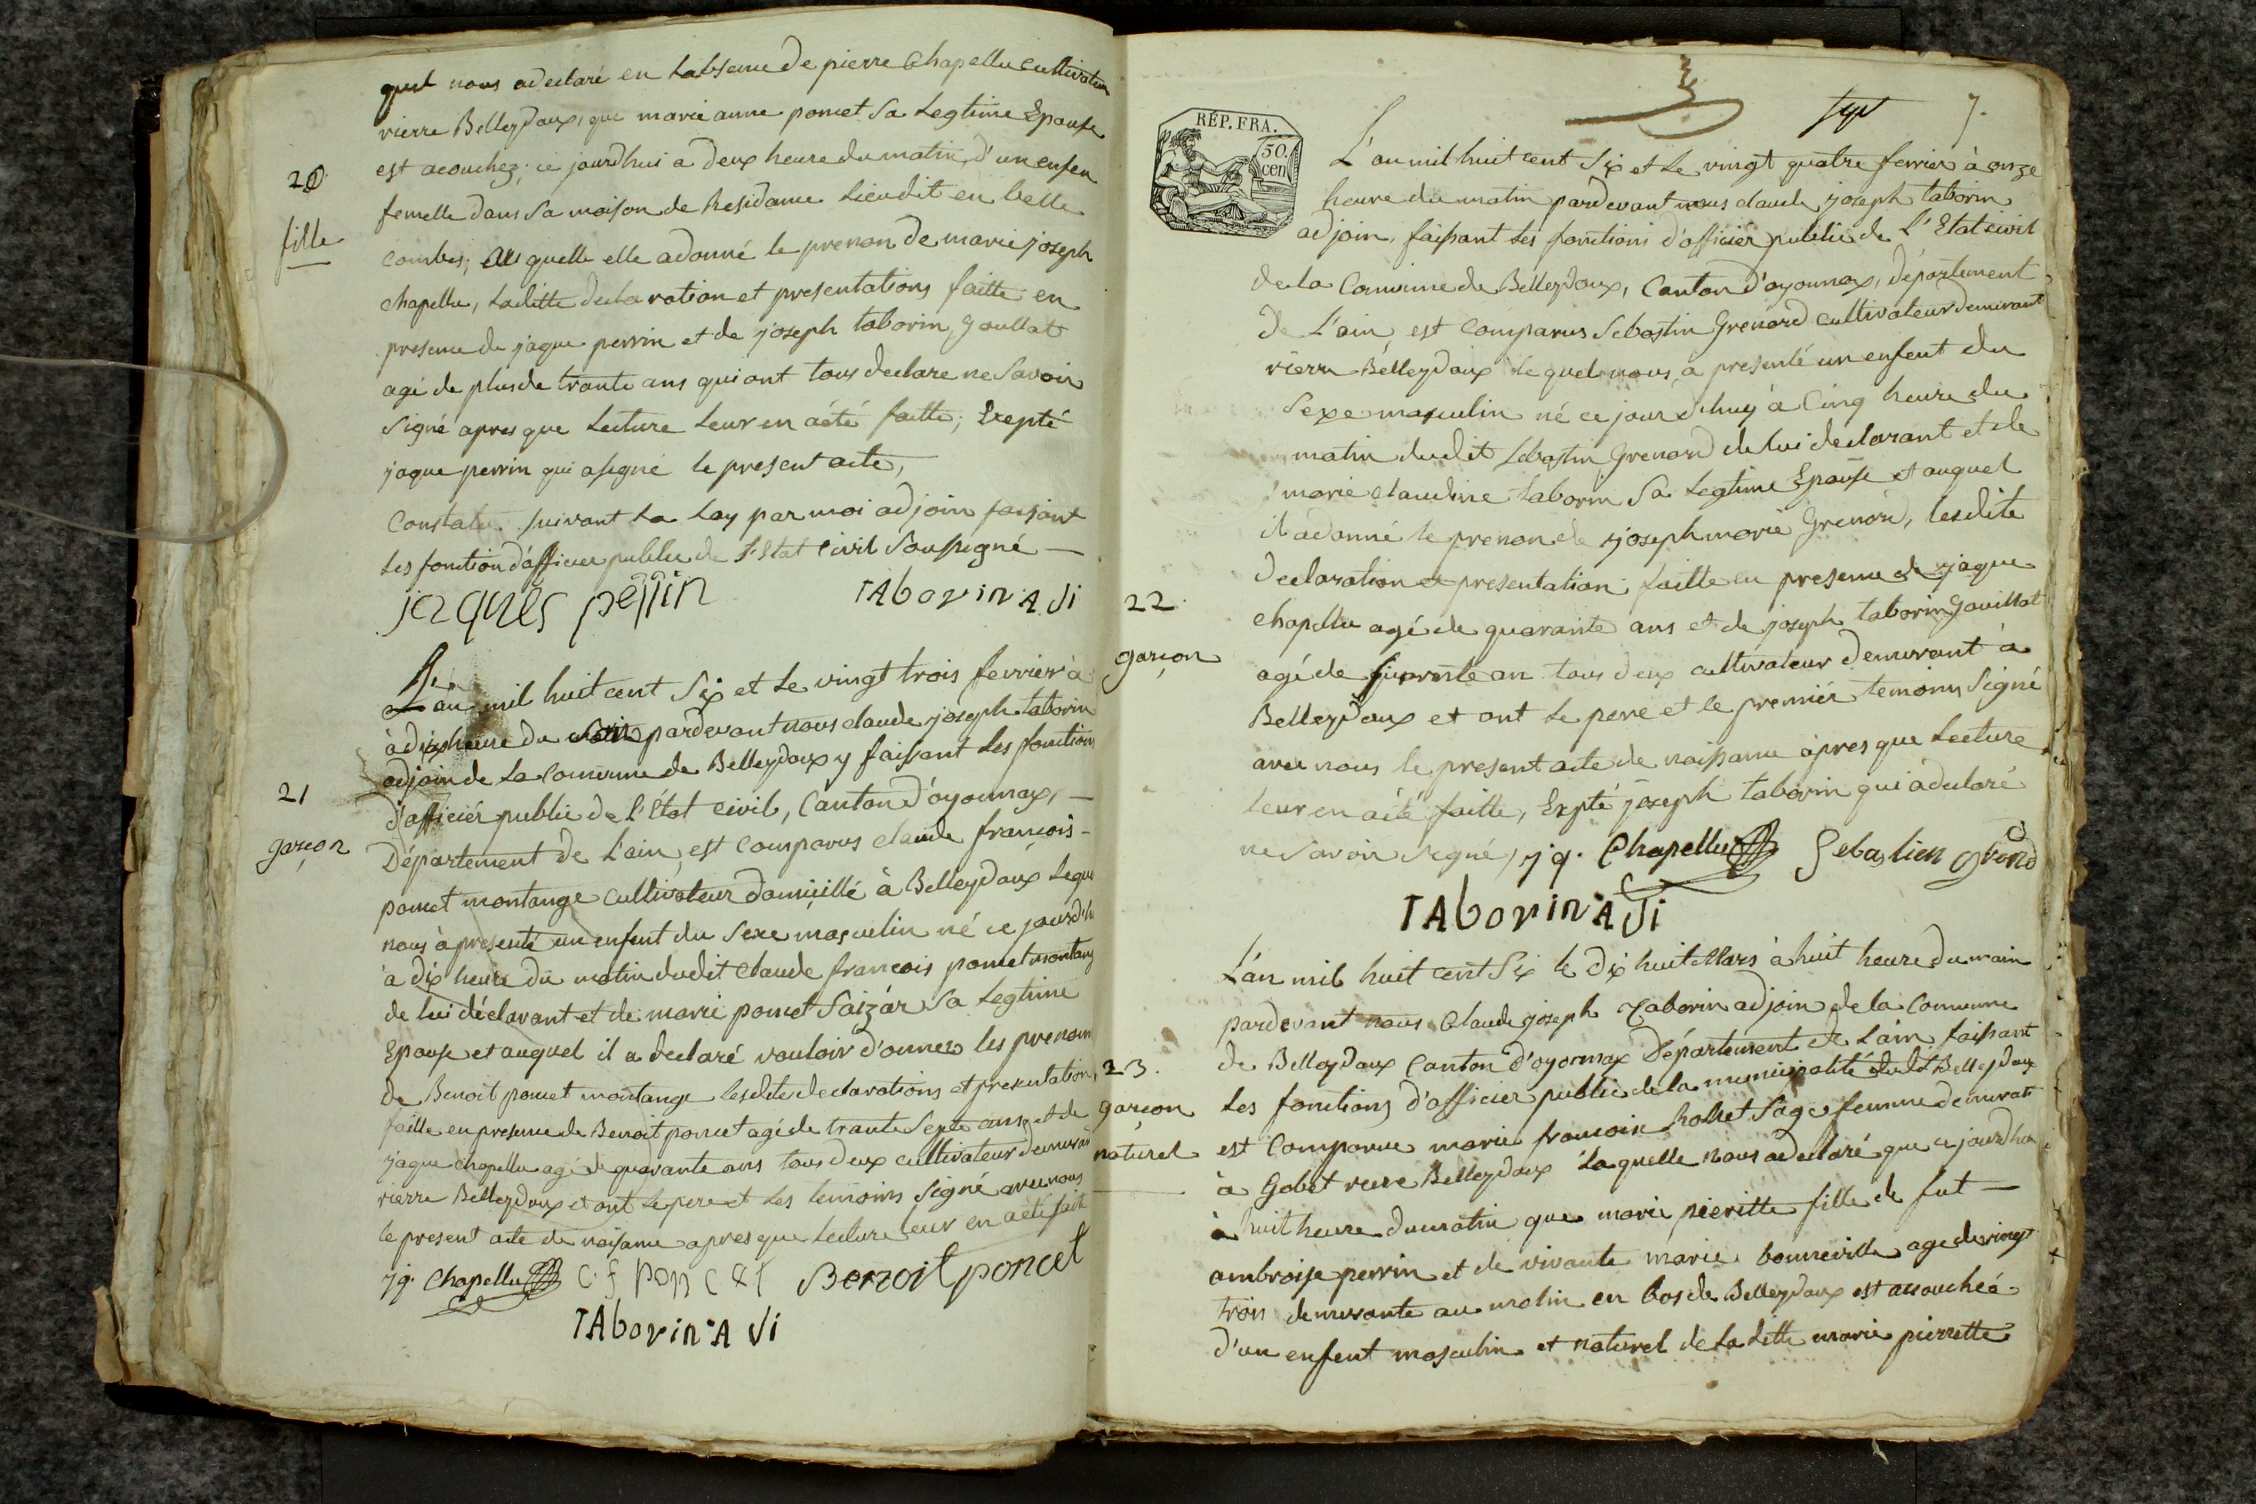 quel nous a declaré en Labsence de pierre Chapellu cultivateur
rierre Belleydoux, que marie anne poncet Sa Legtime Epouse
est acouchez, ce jourdhui a deux heure du matin, d'un enfen
20
femelle dans Sa maison de Residance Lieudit en belle
fille
combes; quelle elle adonné le prenon de marie joseph
chapellu, Laditte declaration et presentations faitte en
presence de jaque perrin et de joseph taborin, Goullat
agé de plus de trante ans qui ont tous declare ne Savoir
Signé apres que Lecture Leur en aété faitte; Exepté
jaque perrin qui asigné le present acte,
Constaté Suivant La Loy par moi adjoin faisant
Les fonction d'afficier publie de l'Etat Civil Sousigné —
jaques perrin TAborin AJi
L'an mil huit cent Six et Le vingt trois fevrier à
à dix heure du pardevant nous claude joseph taborin
adjoin de La Commune de Belleydoux y faisant Les fonctions
21
d'afficiér public de l'Etat civil, Canton d'oyonnax, —
garçon
Département de L'ain, est Comparus claude françois -
poncet montange cultivateur domicillé à Belleydoux Leque
nous à presenté un enfent du Sexe masculin né ce jourd'h
à dix heure du matin dudit Claude françois poncet montang
de lui déclarant et de marie poncet Saizar Sa Legtime
Epouse et auquel il a declaré vouloir d'onner les prenom
de Benoit poncet montange lesdite declarations et presentation,
faitte en presence de Benoit poncet agé de trante Septe ans, et de
jaque chapellu agé de quarante ans tous deux cultivateur demurant
rierre Belleydoux et ont Le pere et Les temoins Signé avec nous
le present acte de naisance apres que Lecture Leur en aété faitte
jq. Chapellu C. f poncet Benoit poncet
TAborin AJi
7.
RÉP. FRA.
50. cen
L'an mil huit cent Six et Le vingt quatre fevrier à onze
heure du matin pardevant nous claude joseph taborin
adjoin, faisant Les fonctions d'officier public de L'Etat civil
de la Commune de Belleydoux, Canton d'oyonnax, département
de L'ain, est Comparus Sebastin Grenard cultivateur demurant
rierre Belleydoux Lequel nous a presenté un enfent du
Sexe masculin né ce jour d'huy à Cinq heure du
matin dudit Sebastin Grenard de lui declarant et de
marie claudine taborin Sa Legtime Epouse et auquel
il adonné le prenon de joseph marie Grenard, lesdite
declaration et presentation faitte en presence de jaque
22
chapellu agé de quarante ans et de joseph taborin Gouillat
garçon
agé de quarente an tous deux cultivateur demurant à
Belleydoux et ont Le pere et le premiér temoins Signé
avec nous le present acte de naissance apres que Lecture
Leur en aété faitte, Expté joseph taborin qui adeclaré
ne Savoir Signé, jq. Chapellu Sebastien Grenard
TAborin AJi
L'an mil huit cent Six le dix huit Mars à huit heure du matin
pardevant nous Claude joseph Taborin adjoin de la Commune
de Belleydoux Canton d'oyonnax Département de L'ain faisant
23.
Les fonctions d'officier public de la municipalité dudit Belleydoux
garçon
est Comparue marie francoise rollet Sage femme demurant
naturel
à Gobet reire Belleydoux Laquelle nous adeclaré que ce jourd'hui
à huit heure du matin que marie pierrette fille de fut —
ambroise perrin et de vivante marie bonneville age de vingt
trois demurante au molin en bas de Belleydoux est acouchéé
d'un enfent masculin et naturel de La ditte marie pierrette